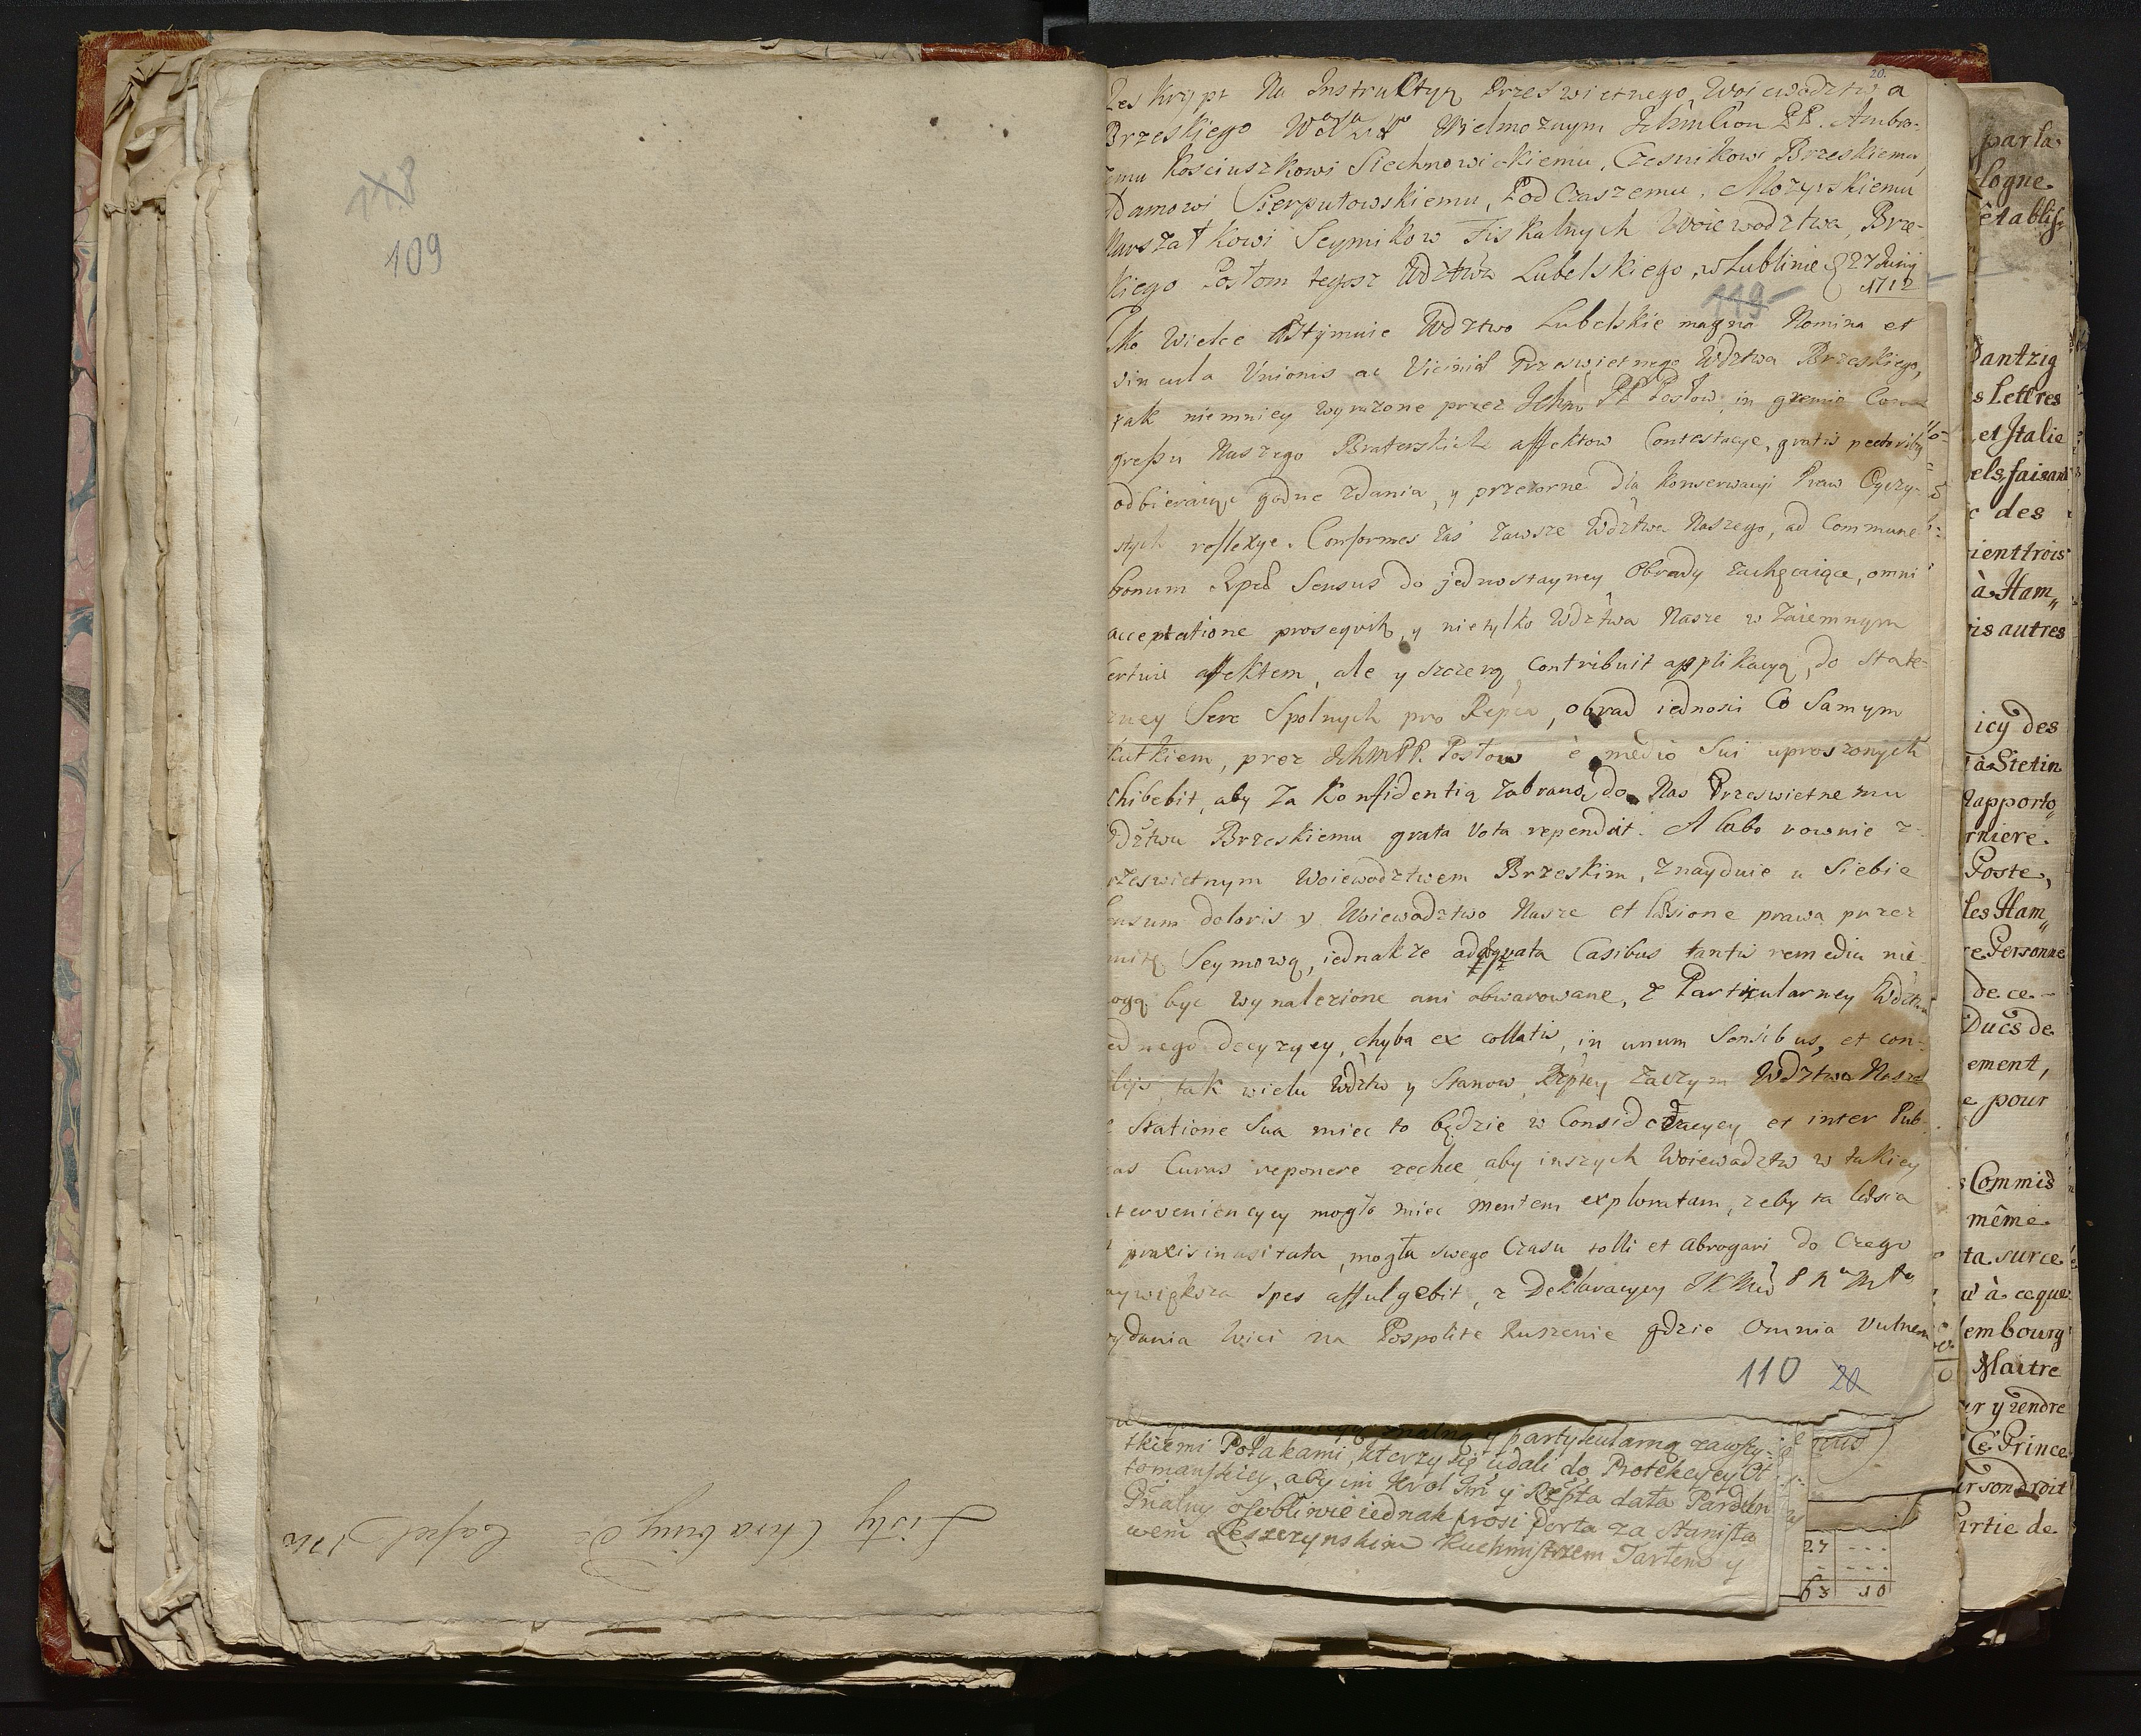 118
109
Listy Chrabiny de Capel 1712
20.
Reskrypt Na Instruktyą Przeswietnego Woiewodztwa
Brzeskiego Wielmoznym Ichmciom PP. Ambro-
zemu Kosciuszkowi Siechnowickiemu, Czesnikowi Brzeskiemu,
Adamowi Sierputowskiemu, Pod Czaszemu, Mozyrskiemu
Marszałkowi Seymikow Fiskalnych Woiewodztwa, Brze-
skiego Posłom tegosz Wdztwa Lubelskiego, w Lublinie 27 Junij
1712
119
Jako Wielce Estymuie Wdztwo Lubelskie magna Nomina et
vincula Unionis ac Vicinit Przeswietnego Wdztwa Brzeskiego,
tak niemniey wyrażone przez Ichm PP Posłow, in gremio Con-
gressu Naszego Braterskich affektow Contestacye, gratis pectoriby
odbieraiąc godne zdania, y przezorne dla Konserwacyi Praw Oyczy-
stych reflexye. Conformes zas zawsze Wdztwa Naszego, ad Commune
bonum Rpcd Sensus do jednostayney Obrady zachęcaiące, omni
acceptatione proseqvit, y nietylko Wdztwa Nasze wzaiemnym
certuie affektem, ale y szczerą contribuit applikacyą, do state-
czney Serc Spolnych pro Repca, obrad iednosci Co Samym
skutkiem, prez IchmPP. Posłow è medio Sui uproszonych
exhibebit, aby Za Konfidentią Zabraną do Nas Przeswietnemu
Wdztwu Brzeskiemu grata Vota rependat. A labo rownie z
Przeswietnym Woiewodztwem Brzeskim, znayduie u Siebie
sensum doloris y Woiewodztwo Nasze et læsione prawa przez
mitę Seymową, iednakze adæqvata Casibus tantis remedia nie-
mogą być wynalezione ani obwarowane, z Partikularney Wdztwa
iednego decyzyey, chyba ex collatis, in unum Sensibus, et con-
silijs, tak wielu Wdztw y Stanow, Rzptey zaczym Wdztwo Nasze
Statione Sua miec to będzie w Consideracyey et inter Pub-
licas Curas reponere zechce aby inszych Woiewodztw w takiey
interveniencyey mogło miec mentem exploratam, zeby ta læsia
praxis inusitata, mogła swego Czasu tolli et abrogari do Czego
naywiększa spes affulgebit, z Deklaracyey JKMci P N M
wydania Wici na Pospolite Ruszenie gdzie Omnia Vulnera
110 20
y partykularną zawszy-
tkiemi Polakami, ktorzy się udali do Protekcyey Ot-
tomanskiey, aby im Krol Jmć y Rzpta dała Pardon
Gñalny osobliwie iednak prosi Porta za Stanisła-
wem Leszczynskim Kuchmistrzem Tartem y
27
63 10
parla
logne.
établiss
Dantzig
s Lettres
et Italie
els, faisant
des
ient trois
à Ham„
is autres
icy des
à Stetin
Rapporto„
rniere.
Poste,
les Ham„
e Personne
de ce-
Ducs de
ement,
e pour
Commis
même
ta surce
u à ce que
embourg
Maitre
er y rendre
Ce Prince
ur son droit
artie de